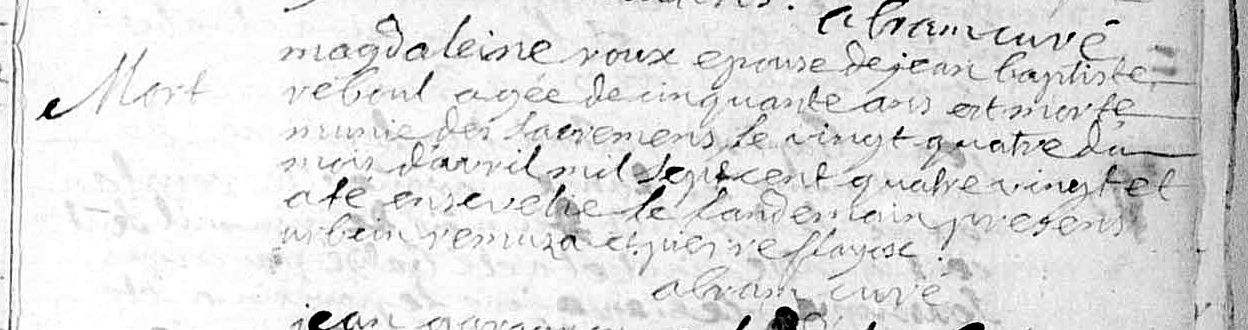 abram curé
Mort
magdaleine roux epouse de jean baptiste
reboul agée de cinquante ans est morte
munie des sacremens le vingt quatre du
mois d'avril mil sept cent quatre vingt et
a été ensevelie le landemain presens
urbain remuza et pierre flayox.
abram curé
jean